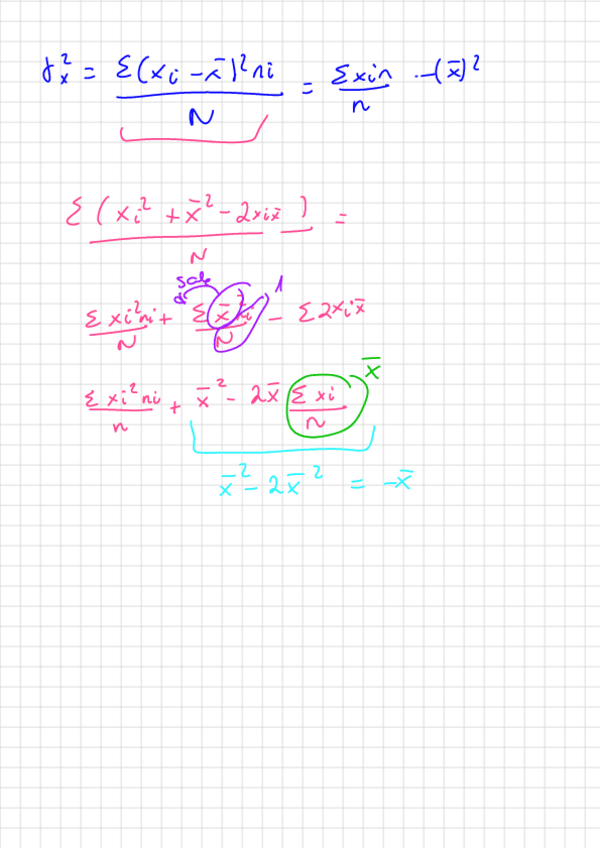 γ²ₓ = Σ(xi - x̄)² ni / N = Σ xi n / n - (x̄)²
Σ ( xi² + x̄² - 2xi x̄ ) / N =
sale 1
Σ xi² ni / N + Σ x̄² ni / N - Σ 2xi x̄
x̄
Σ xi² ni / n + x̄² - 2x̄ Σ xi / n
x̄² - 2x̄² = -x̄